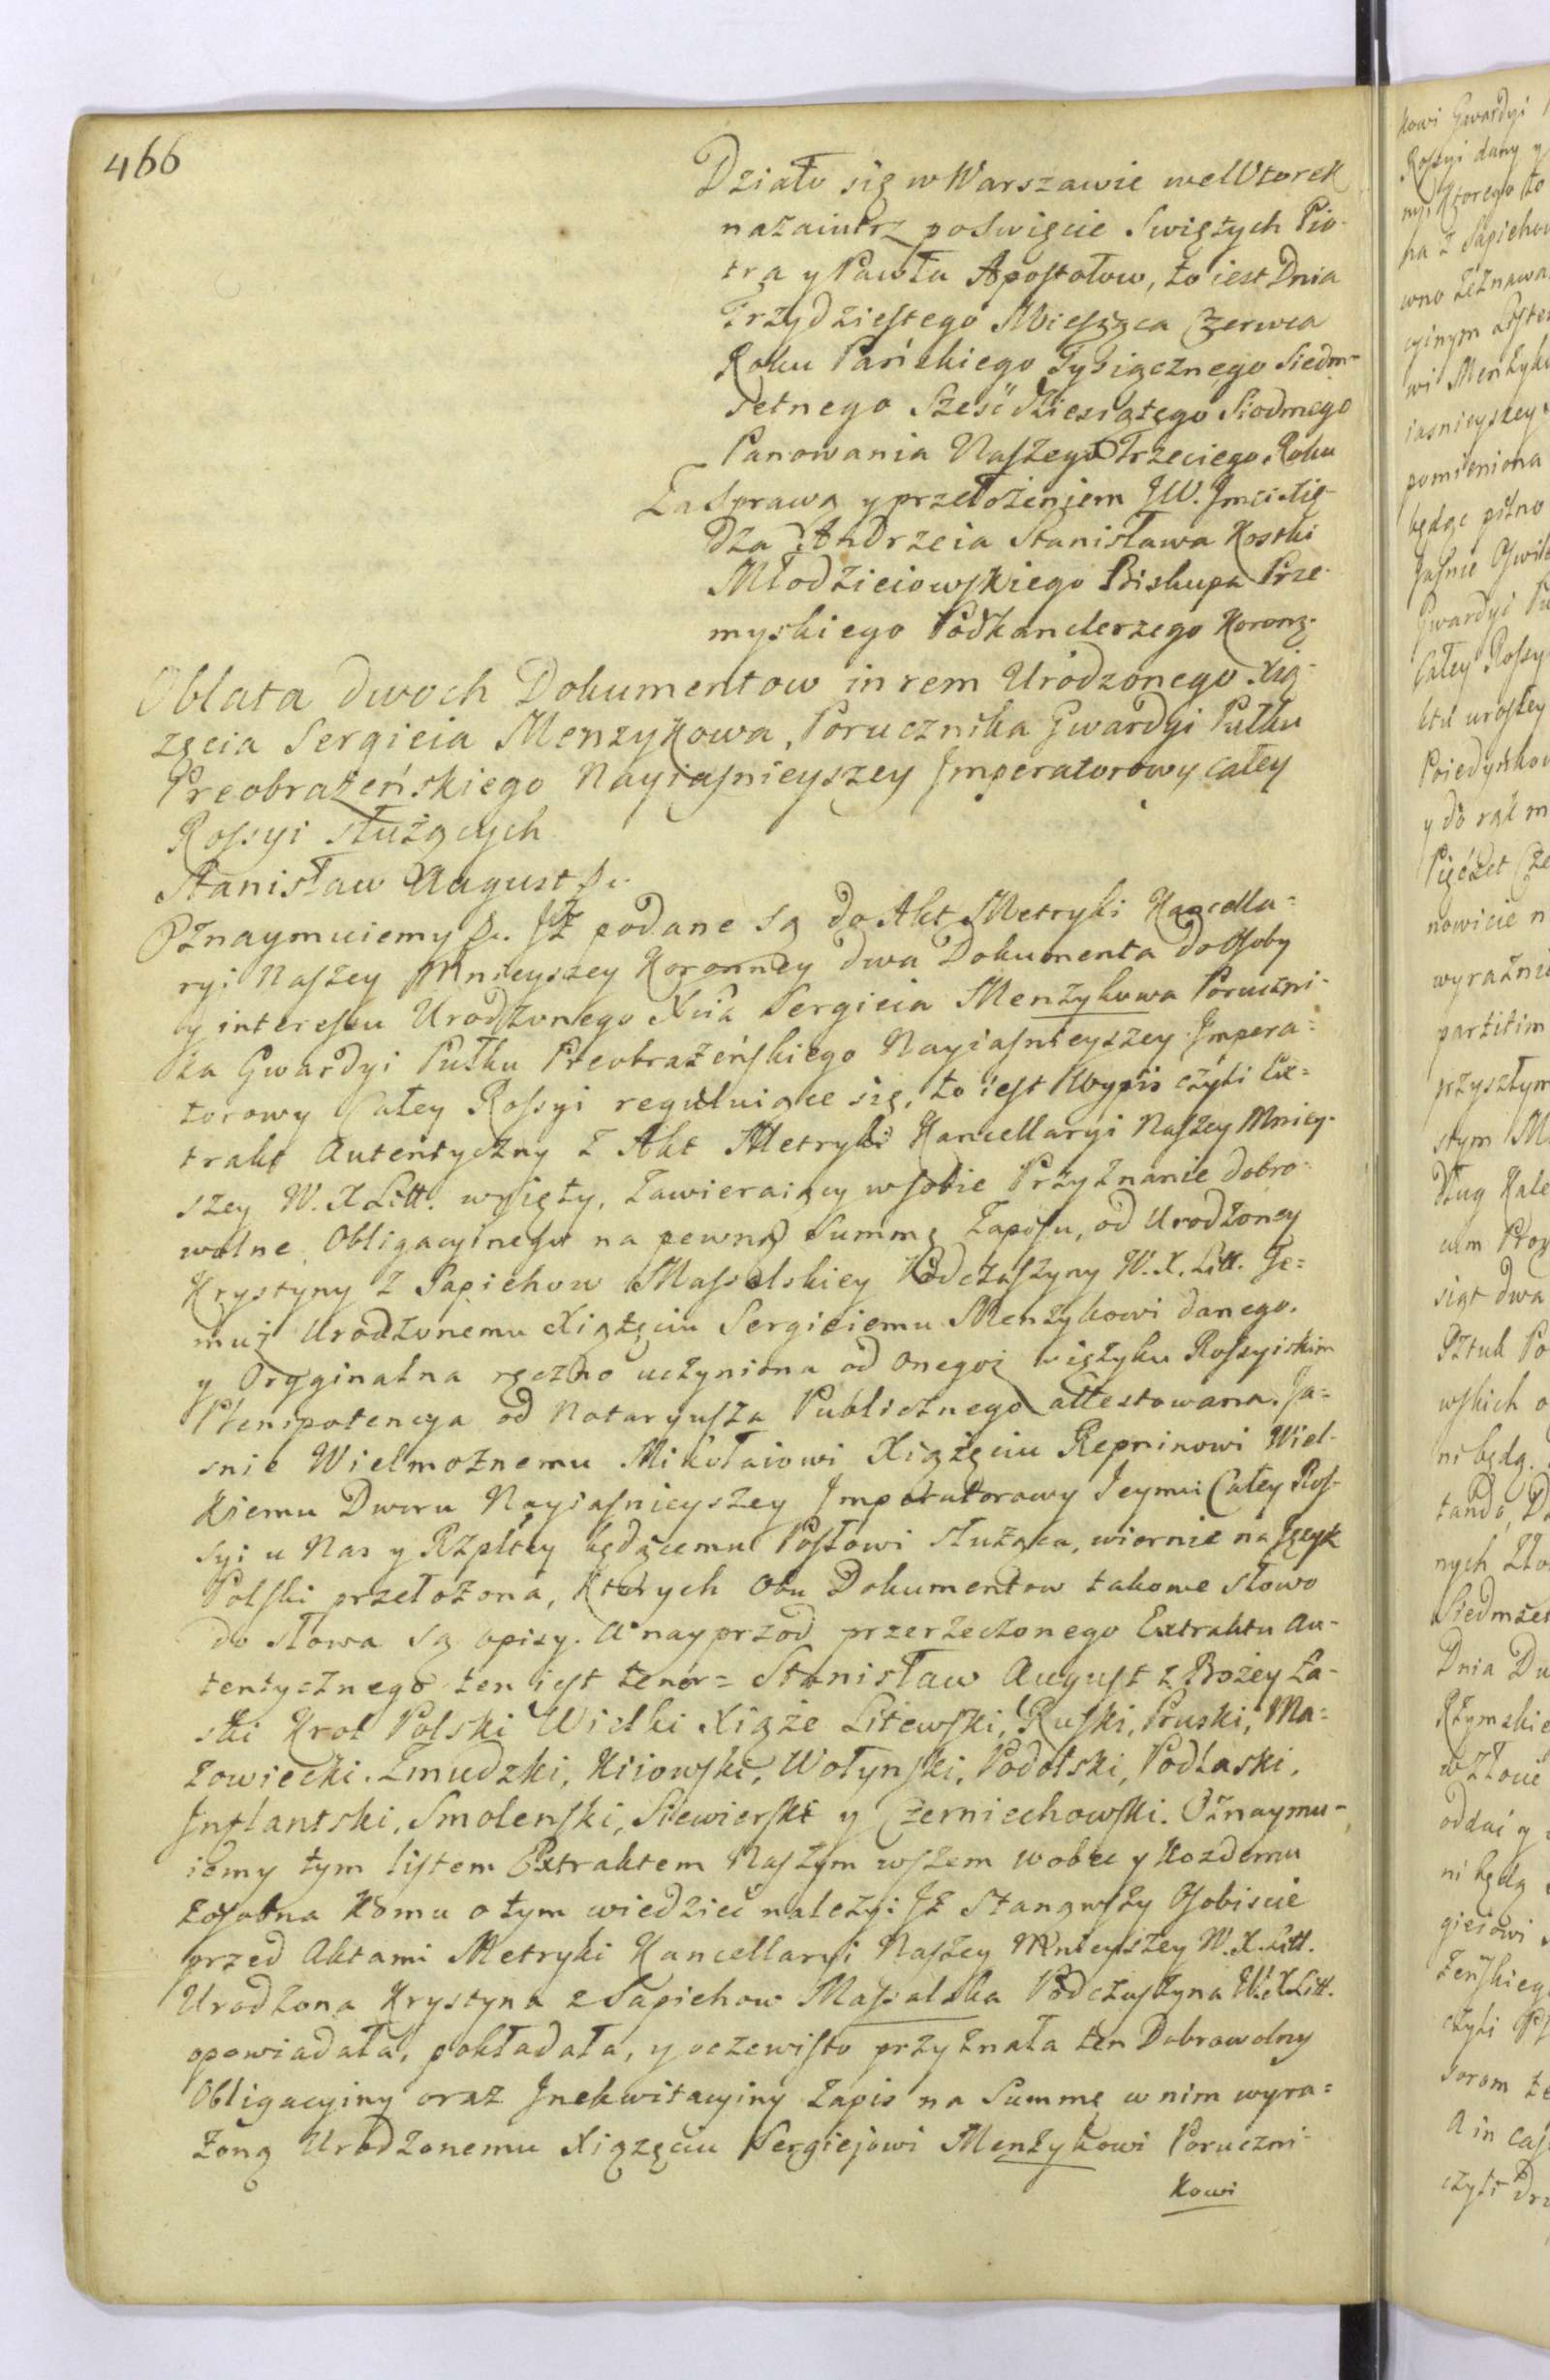 466
Działo się w Warszawie we Wtorek
nazaiutrz po Swięcie Swiętych Pio-
tra y Pawła Apostołow, to iest Dnia
Trzydziestego Miesiąca Czerwca
Roku Pańskiego Tysiącznego Siedm-
setnego Sześć Dziesiątego Siodmego
Panowania Naszego Trzeciego Roku
Za Sprawą y przełożeniem JW. Jmci Xię-
dza Andrzeia Stanisława Kostki
Młodzieiowskiego Biskupa Prze-
myskiego Podkanclerzego Koronn.
Oblata dwoch Dokumentow in rem Urodzonego Xią-
zęcia Sergieia Menzykowa, Porucznika Gwardyi Pułku
Preobrażeńskiego Nayiasnieyszey Jmperatorowy całey
Rossyi służących
Stanisław August &c.
Oznaymuiemy &c. Jż podane są do Akt Metryki Kancella=
ryi Naszey Mnieyszey Koronney dwa Dokumenta do Osoby
y interessu Urodzonego Xcia Sergieia Menżykowa Poruczni-
ka Gwardyi Pułku Preobrażeńskiego Nayiasnieyszey Jmpera=
torowy Całey Rossyi reguluiące się, to iest Wypis czyli Ex=
trakt Autentyczny z Akt Metryki Kancellaryi Naszey Mniey-
szey W. X Litt. wyięty, zawieraiący w sobie Przyznanie dobro=
wolne Obligacyinego na pewną Summę Zapisu, od Urodzoney
Krystyny z Sapiehow Massalskiey Podczaszyny W. X. Litt. Te=
muż Urodzonemu Xiążęciu Sergieiemu Menżykowi danego.
y Oryginalna ręczno uczyniona od onegoż w ięzyku Rossyiskim
Plenipotencya od Notaryusza Publicznego attestowana. Ja=
snie Wielmożnemu Mikołaiowi Xiążęciu Repninowi Wiel-
kiemu Dworu Nayiasnieyszey Jmperatorowy Jeymci Całey Ros-
syi u Nas y Rzpltey będącemu Posłowi służąca, wiernie na Język
Polski przełożona, których Obu Dokumentow takowe słowo
do słowa są opisy. A nayprzod przerzeczonego Extraktu Au-
tentycznego ten iest tenor= Stanisław August z Bożey Ła-
ski Krol Polski Wielki Xiąże Litewski, Ruski, Pruski, Ma=
zowiecki. Zmudzki, Kiiowski, Wołynski, Podolski, Podlaski,
Jnflantski, Smolenski, Siewierski y Czerniechowski. Oznaymu-
iemy tym listem Extraktem Naszym wszem wobec y Kożdemu
zosobna Komu o tym wiedzieć należy: Jż stanąwszy Osobiscie
przed Aktami Metryki Kancellaryi Naszey Mnieyszey W. X. Litt.
Urodzona Krystyna z Sapiehow Massalska Podczaszyna W. X Litt.
opowiadała, pokładała, y oczewisto przyznała ten Dobrowolny
Obligacyiny oraz Jnekwitacyiny Zapis na Summę w nim wyra=
żoną Urodzonemu Xiązęciu Sergiejowi Menżykowi Poruczni-
kowi